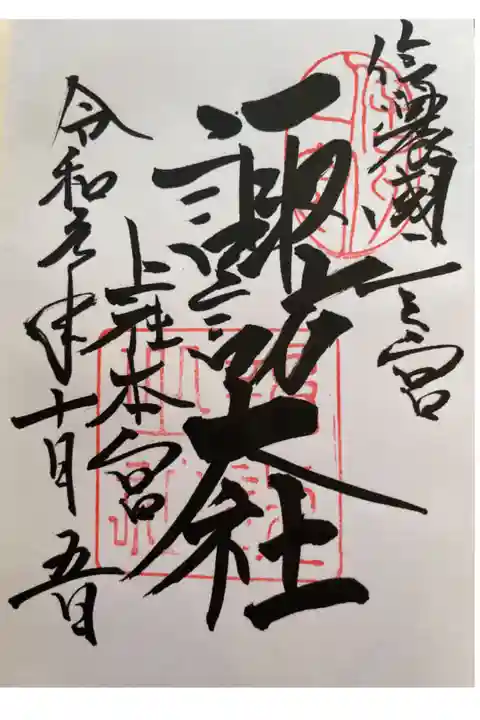 信濃國一之宮
諏訪大社
上社本宮
令和元年十月五日